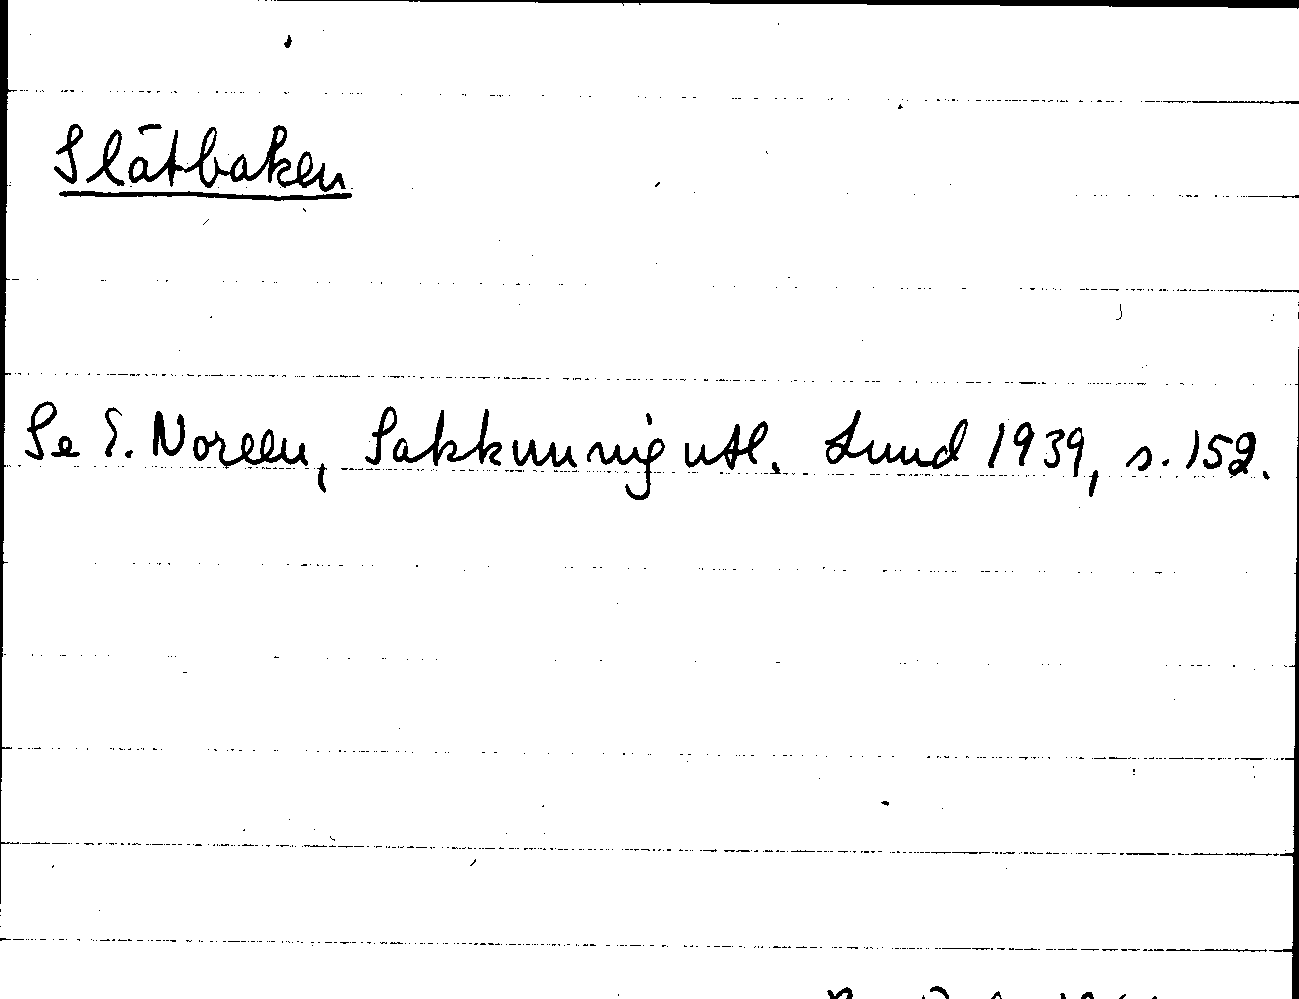 Slätbaken
Se E. Noreen, Sakkunnigutl. Lund 1939, s. 152.